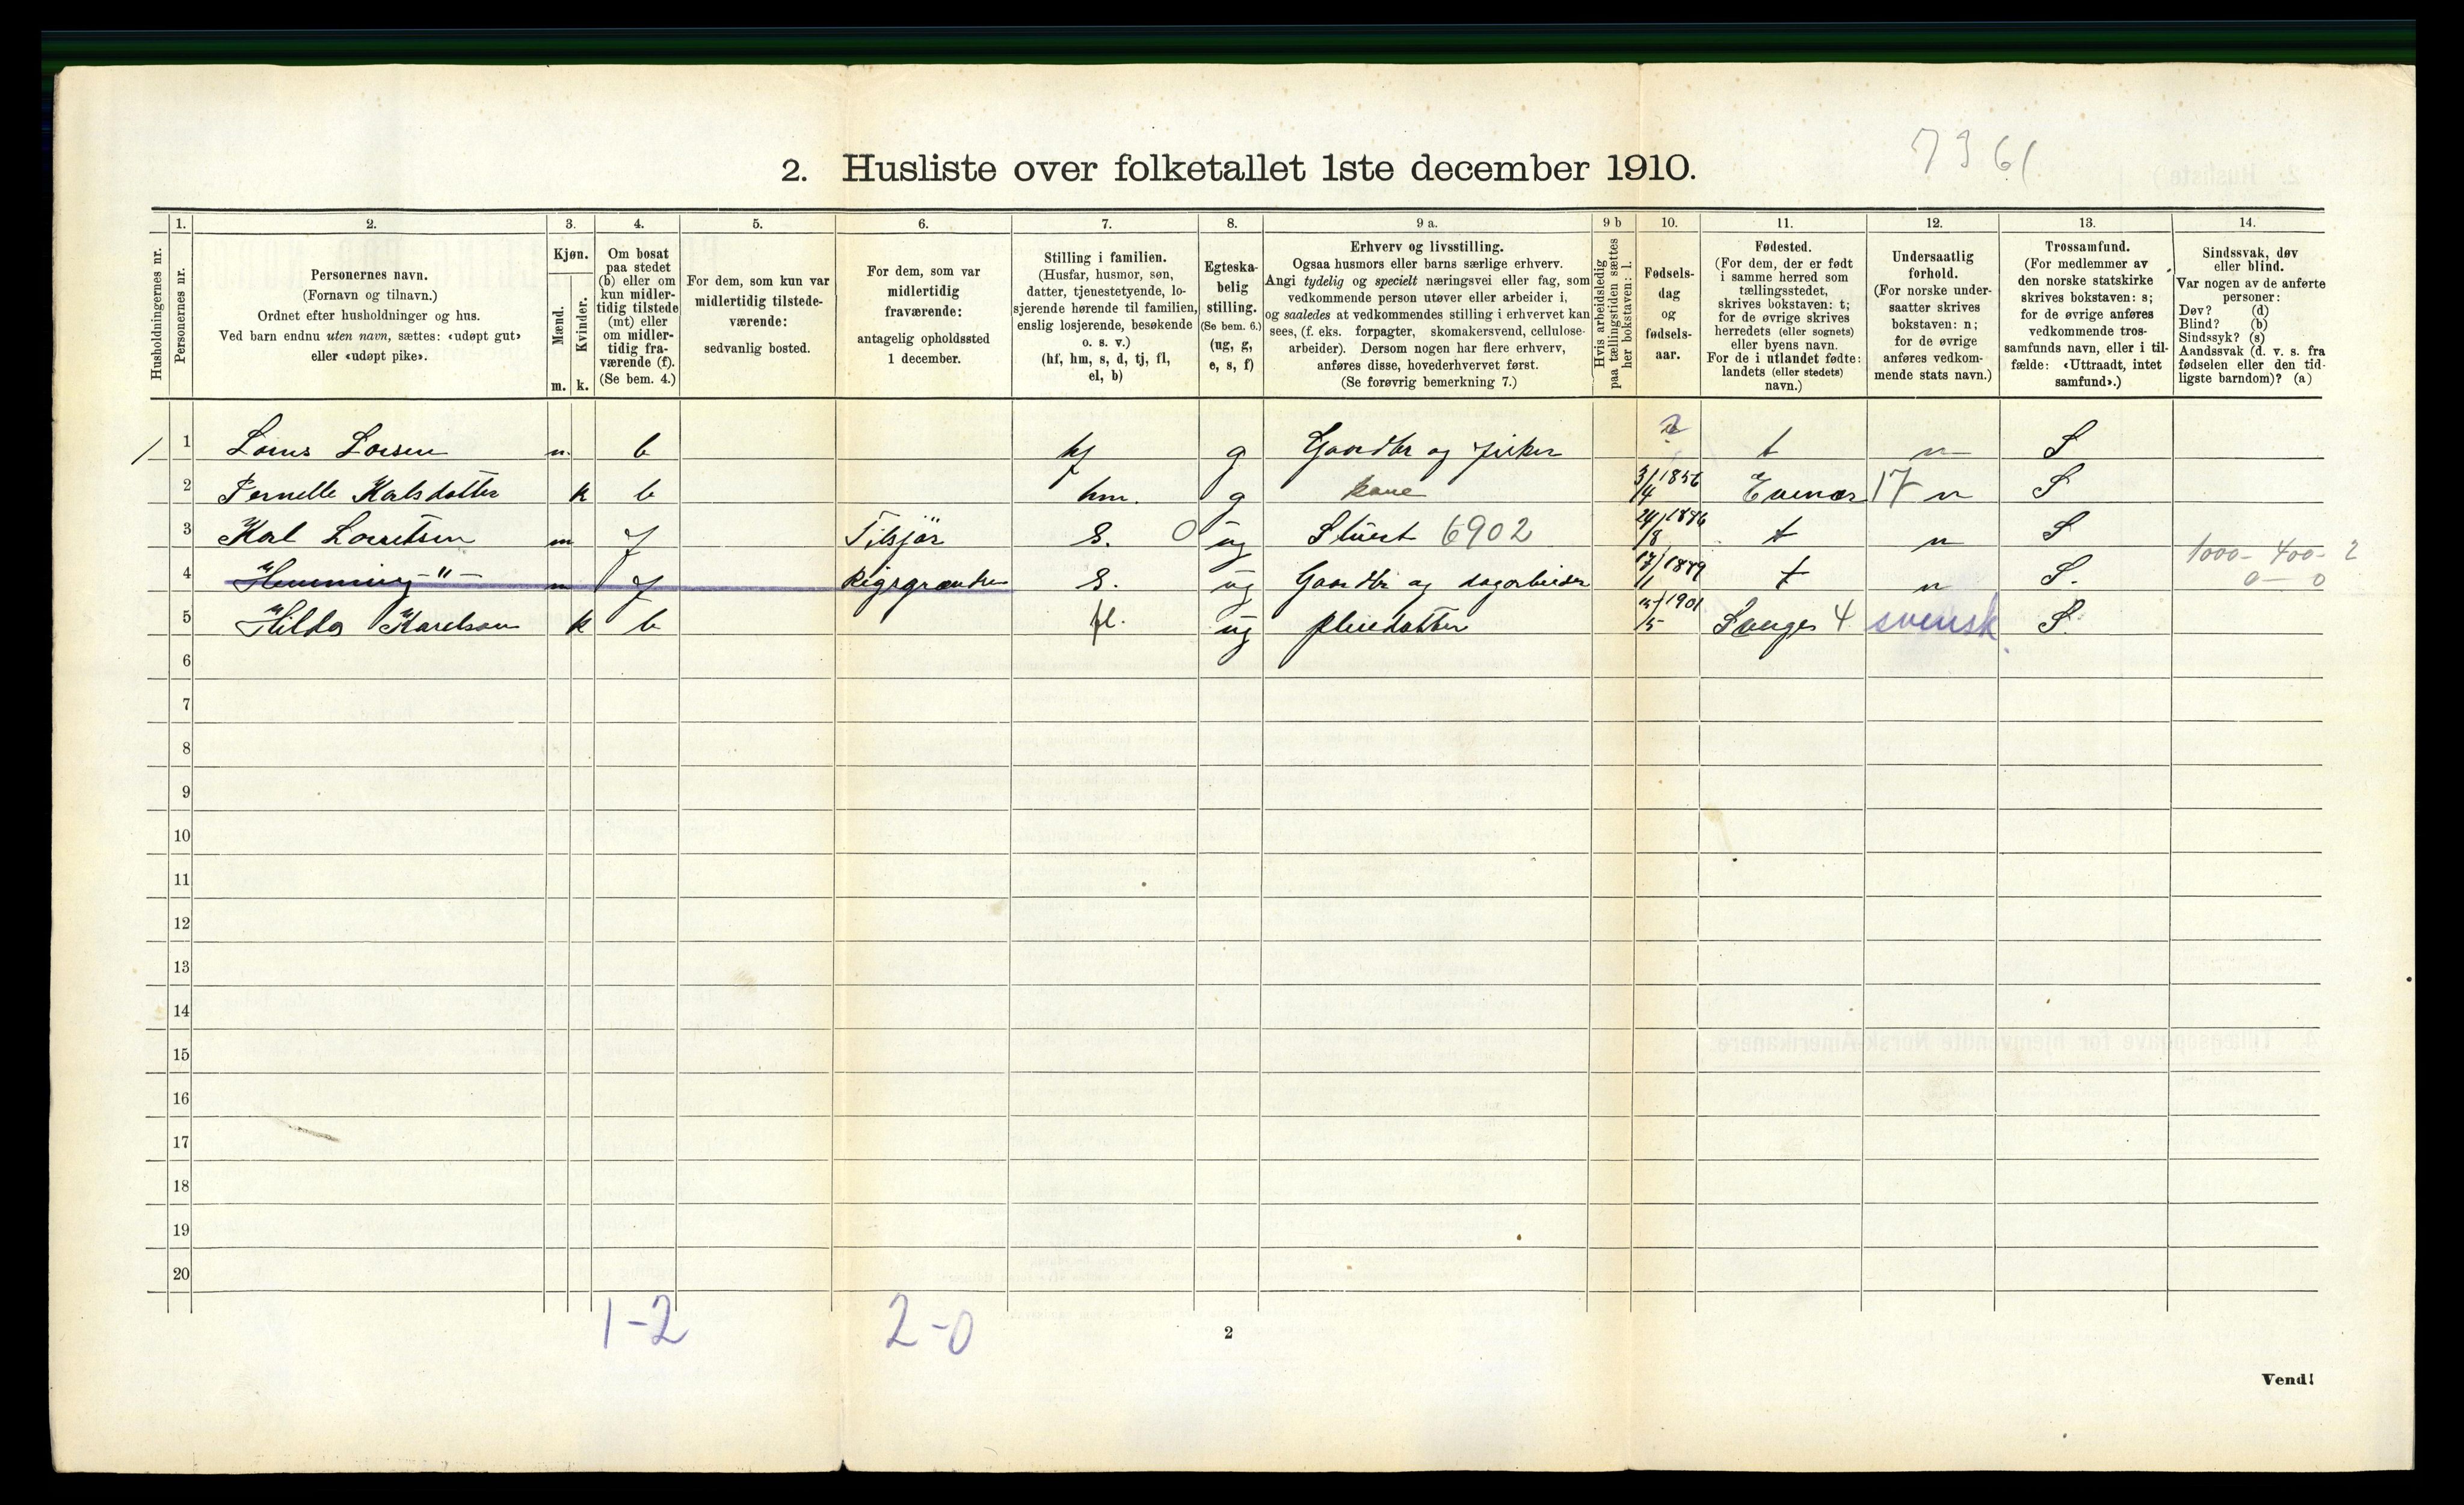 7361
2. Husliste over folketallet 1ste december 1910.
Husholdningernes nr.
1.
Personernes nr.
2.
Personernes navn.
(Fornavn og tilnavn.)
Ordnet efter husholdninger og hus.
Ved barn endnu uten navn, sættes: «udøpt gut»
eller «udøpt pike».
3.
Kjøn.
Mænd.
Kvinder.
m. k.
4.
Om bosat
paa stedet
(b) eller om
kun midler-
tidig tilstede
(mt) eller
om midler-
tidig fra-
værende (f).
(Se bem. 4.)
5.
For dem, som kun var
midlertidig tilstede-
værende:
sedvanlig bosted.
6.
For dem, som var
midlertidig
fraværende:
antagelig opholdssted
1 december.
7.
Stilling i familien.
(Husfar, husmor, søn,
datter, tjenestetyende, lo-
sjerende hørende til familien,
enslig losjerende, besøkende
o. s. v.)
(hf, hm, s, d, tj, fl,
el, b)
8.
Egteska-
belig
stilling.
(Se bem. 6.)
(ug, g,
e, s, f)
9 a.
Erhverv og livsstilling.
Ogsaa husmors eller barns særlige erhverv.
Angi tydelig og specielt næringsvei eller fag, som
vedkommende person utøver eller arbeider i,
og saaledes at vedkommendes stilling i erhvervet kan
sees, (f. eks. forpagter, skomakersvend, cellulose-
arbeider). Dersom nogen har flere erhverv,
anføres disse, hovederhvervet først.
(Se forøvrig bemerkning 7.)
9 b
Hvis arbeidsledig
paa tællingstiden sættes
her bokstaven: l.
10.
Fødsels-
dag
og
fødsels-
aar.
11.
Fødested.
(For dem, der er født
i samme herred som
tællingsstedet,
skrives bokstaven: t;
for de øvrige skrives
herredets (eller sognets)
eller byens navn.
For de i utlandet fødte:
landets (eller stedets)
navn.)
12.
Undersaatlig
forhold.
(For norske under-
saatter skrives
bokstaven: n;
for de øvrige
anføres vedkom-
mende stats navn.)
13.
Trossamfund.
(For medlemmer av
den norske statskirke
skrives bokstaven: s;
for de øvrige anføres
vedkommende tros-
samfunds navn, eller i til-
fælde: «Uttraadt, intet
samfund».)
14.
Sindssvak, døv
eller blind.
Var nogen av de anførte
personer:
Døv? (d)
Blind? (b)
Sindssyk? (s)
Aandssvak (d. v. s. fra
fødselen eller den tid-
ligste barndom)? (a)
1 m b hf g Gaardbr og fisker t n S
2 Pernelle Karlsdatter k b hm. g kone 3/4 1856 Evenes 17 n S
3 Karl m f S. 0 ug 6902 24/8 1886 t n S
4 Hemming -"- m f S. ug Gaardbr og dagarbeider 17/1 1889 t n S. 1000- 400- 2
0 — 0
5 Hilda k b fl. ug pleiedatter /5 1901 4 svensk S.
6
7
8
9
10
11
12
13
14
15
16
17
18
19
20
1-2 2-0
2
Vend!